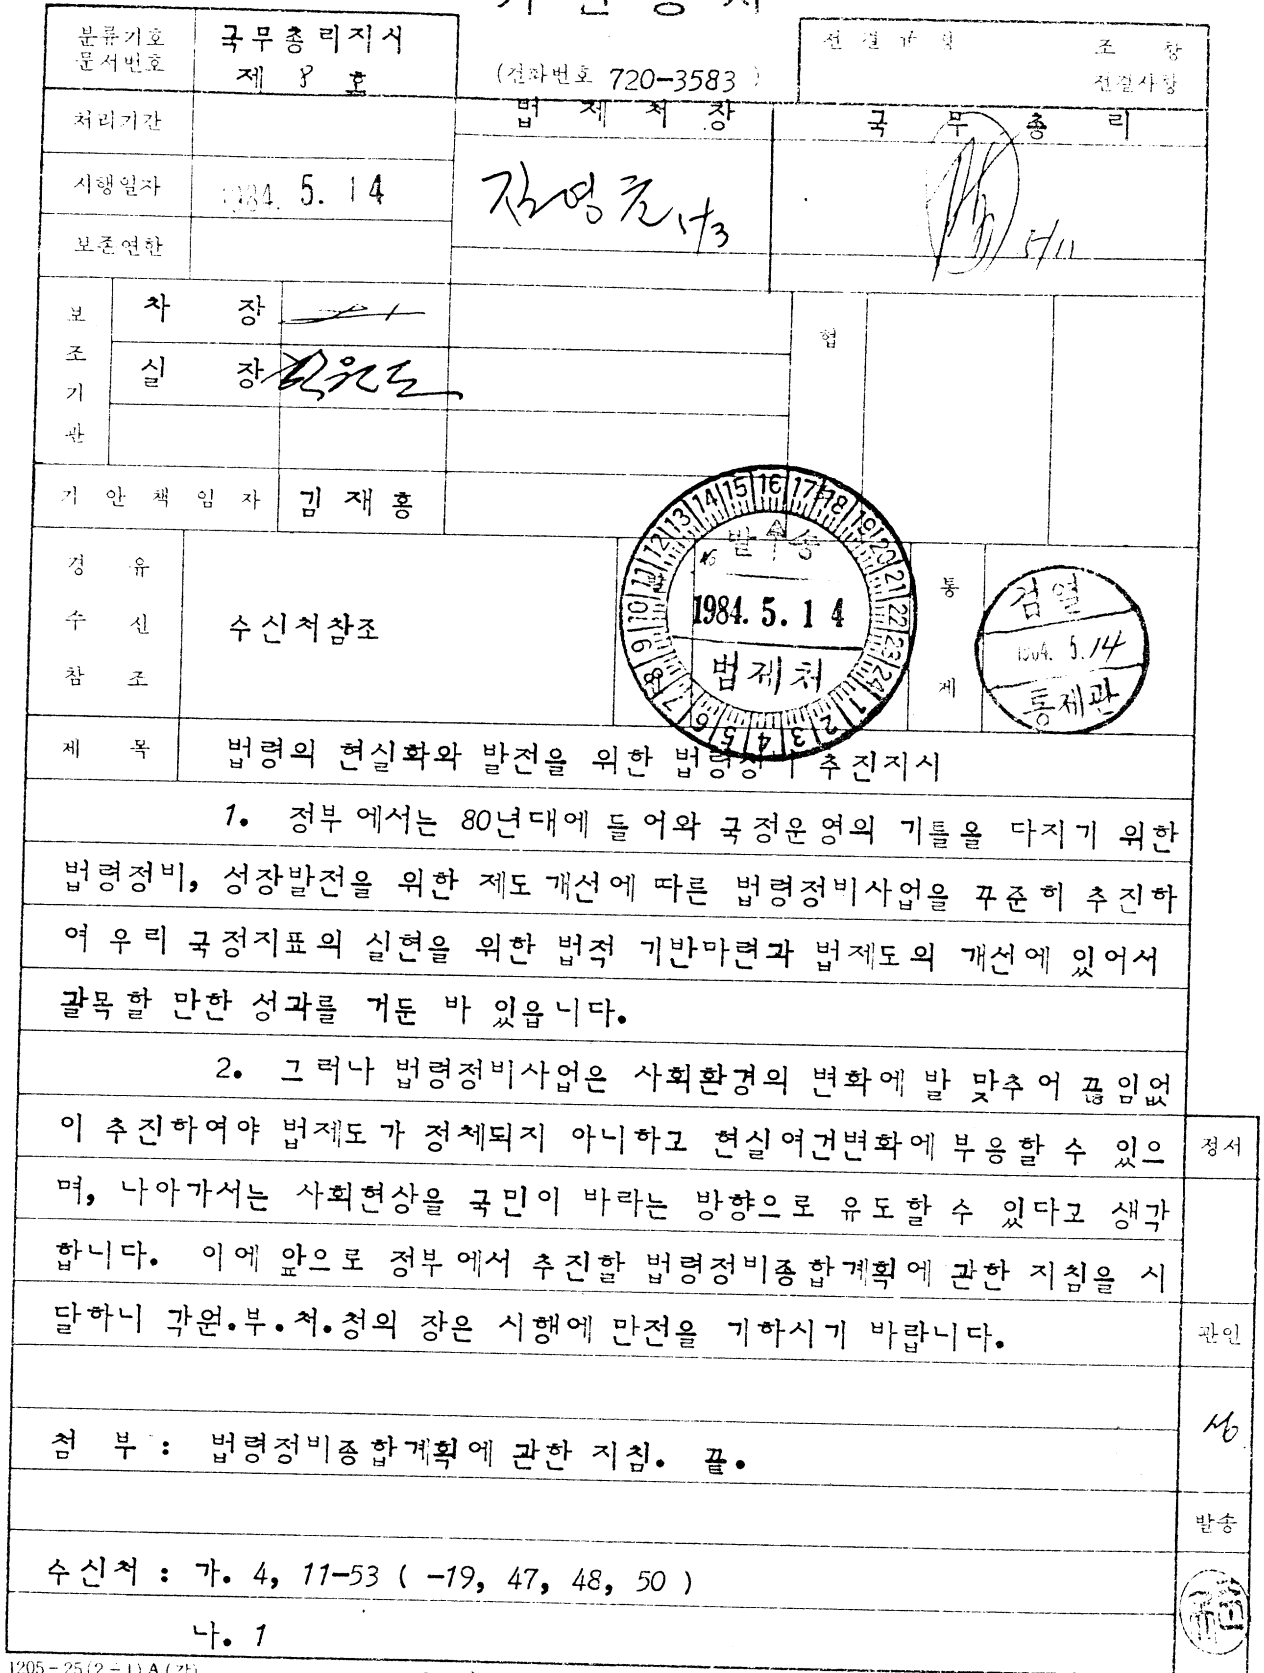 분류기호
문서번호
국무총리지시
제 8 호
(전화번호 720-3583 )
전결규정 조 항
전결사항
처리기간
법 제 처 장
국 무 총 리
시행일자
1984. 5. 14
5/11
보존연한
보조기관
차 장
실 장
협
기 안 책 임 자
김 재 홍
경 유
수 신
참 조
수신처참조
발송
1984. 5. 14
법제처
통
제
검열
1984. 5. 14
통제관
제 목
법령의 현실화와 발전을 위한 법령정비 추진지시
1. 정부에서는 80년대에 들어와 국정운영의 기틀을 다지기 위한
법령정비, 성장발전을 위한 제도개선에 따른 법령정비사업을 꾸준히 추진하
여 우리 국정지표의 실현을 위한 법적 기반마련과 법제도의 개선에 있어서
괄목할 만한 성과를 거둔 바 있읍니다.
2. 그러나 법령정비사업은 사회환경의 변화에 발 맞추어 끊임없
이 추진하여야 법제도가 정체되지 아니하고 현실여건변화에 부응할 수 있으
며, 나아가서는 사회현상을 국민이 바라는 방향으로 유도할 수 있다고 생각
합니다. 이에 앞으로 정부에서 추진할 법령정비종합계획에 관한 지침을 시
달하니 각원.부.처.청의 장은 시행에 만전을 기하시기 바랍니다.
정서
관인
첨 부 : 법령정비종합계획에 관한 지침. 끝.
발송
수신처 : 가. 4, 11-53 ( -19, 47, 48, 50 )
나. 1
1205-25(2-1)A(갑)